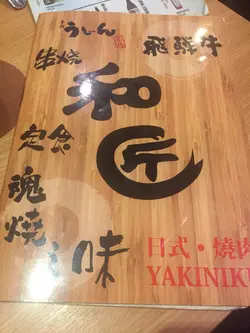 うしん
飛騨牛
串焼
和匠
定食
魂燒
味
日式・燒肉
YAKINIKU